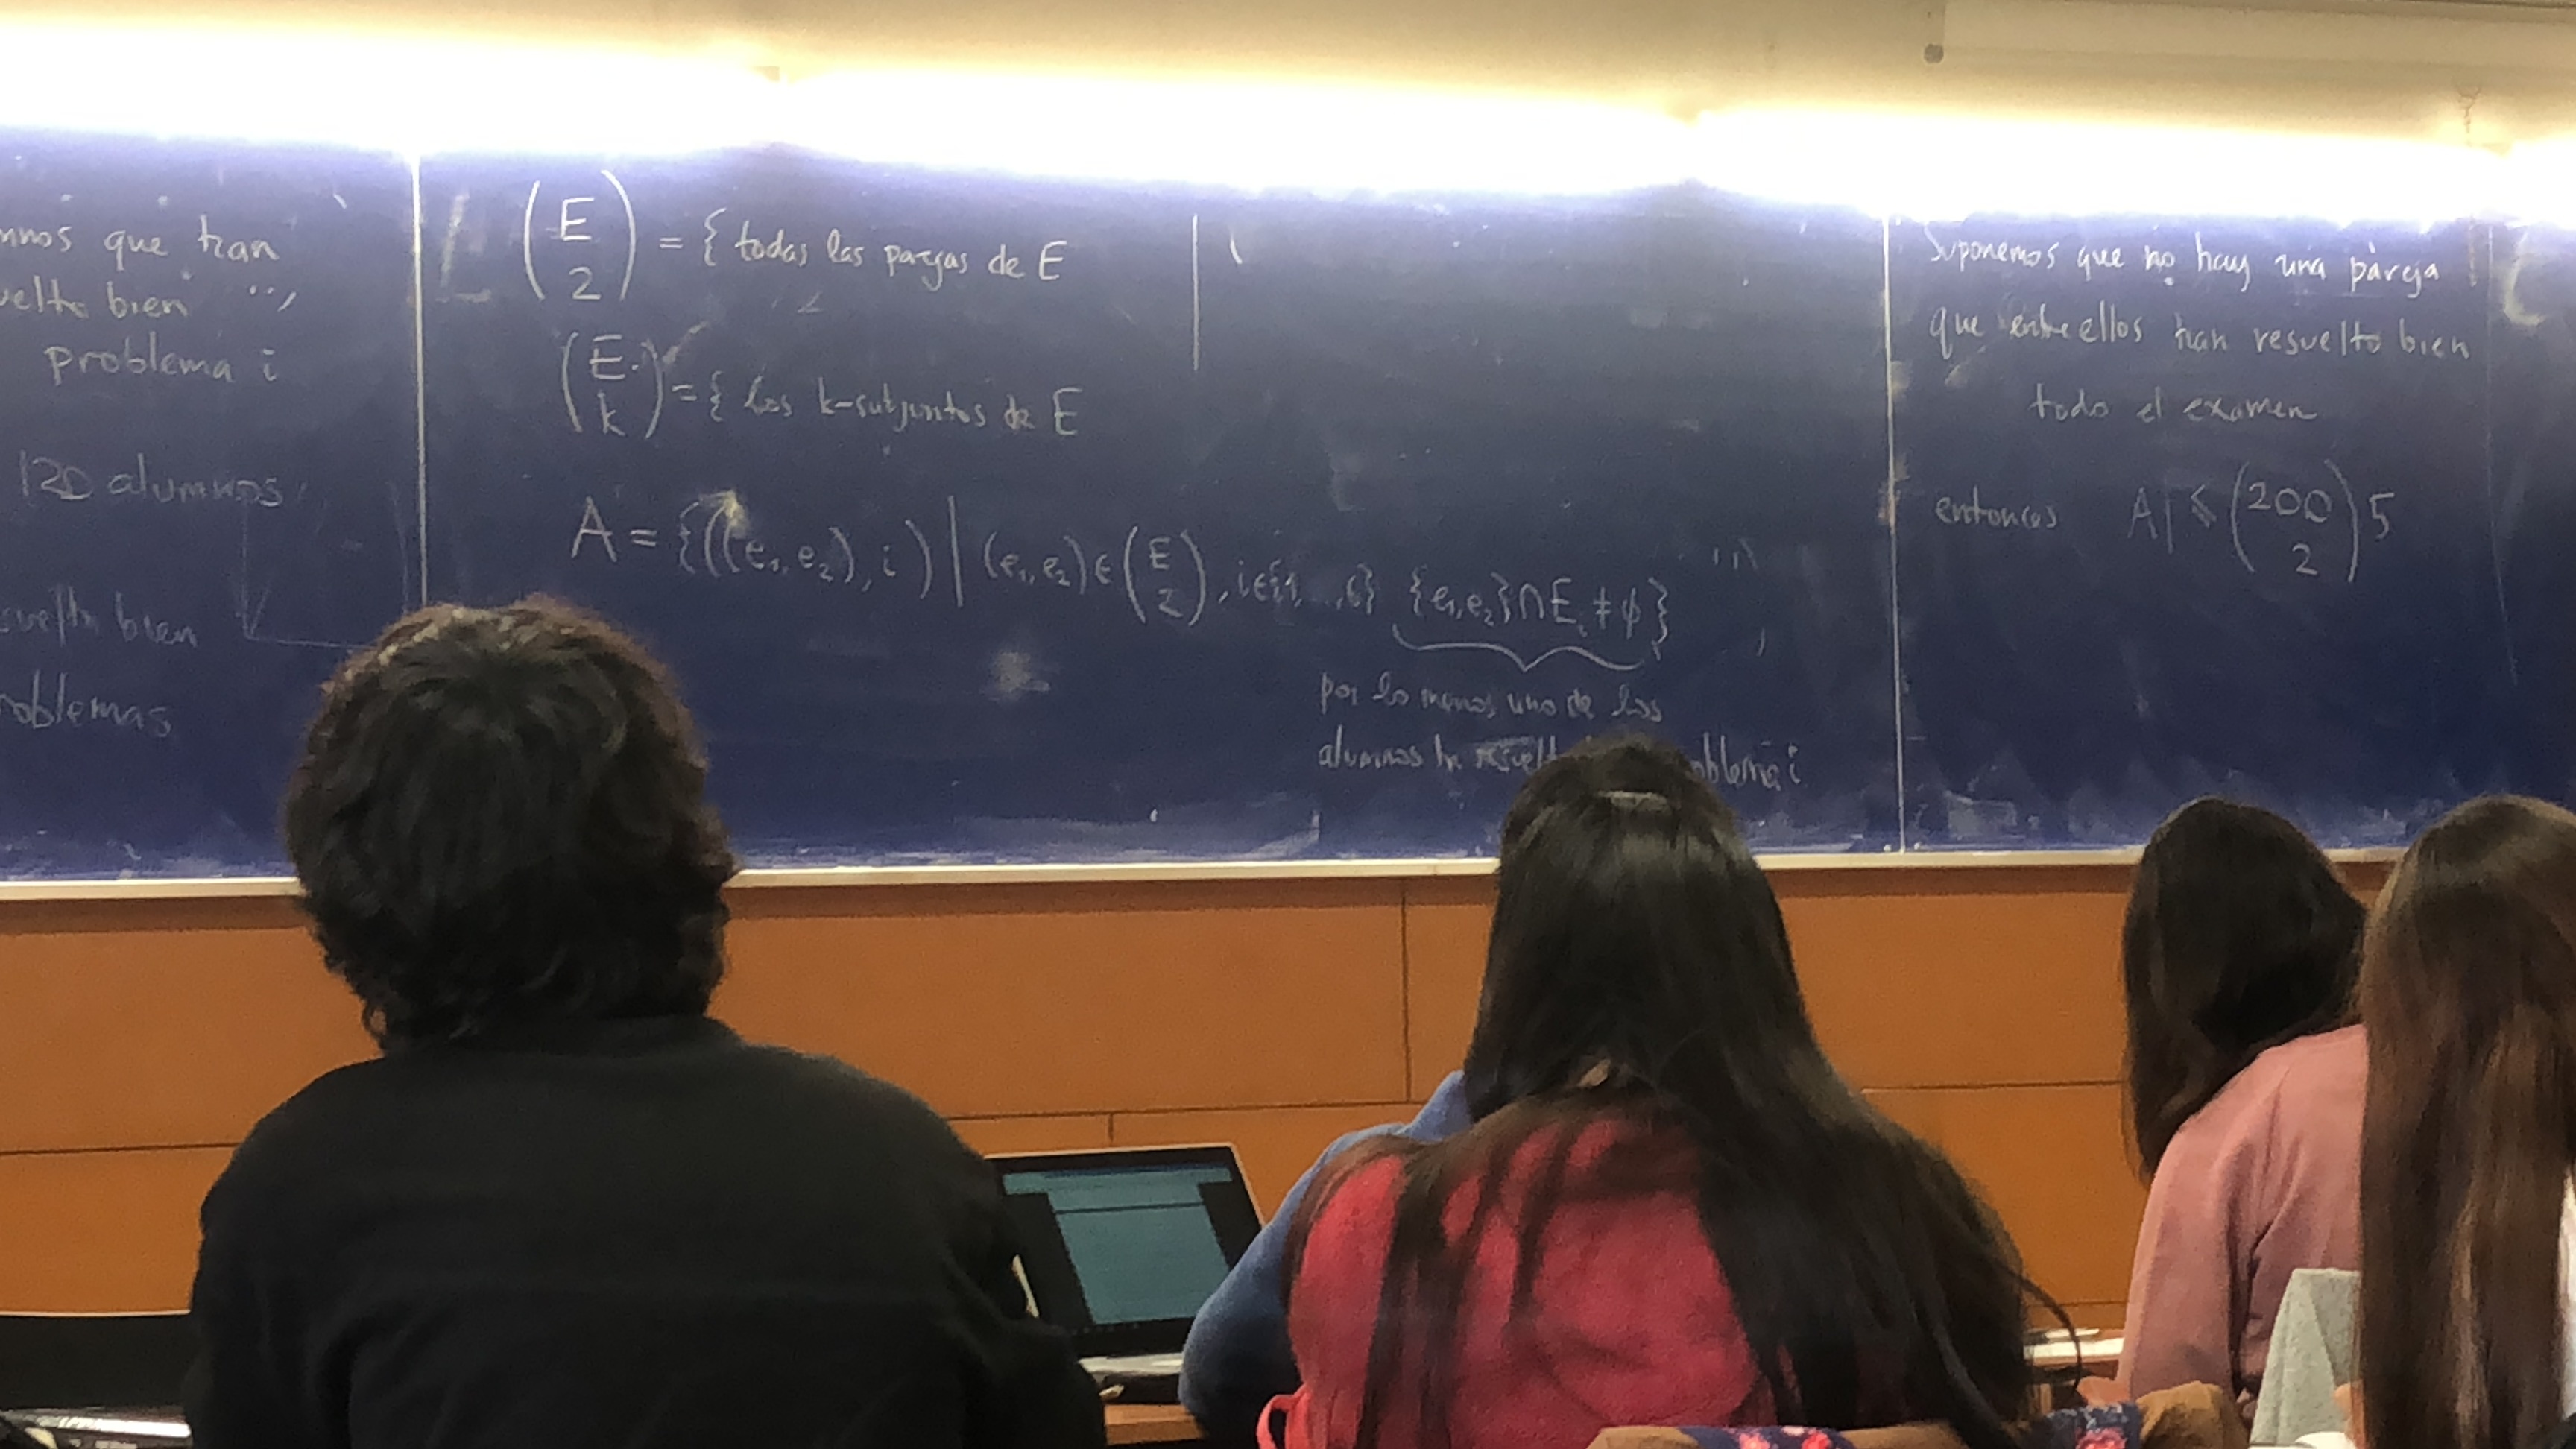 que han
bien
problema i
120 alumnos
bien
(E 2) = { todas las parejas de E
(E k) = { los k-subjuntos de E
A = {((e₁, e₂), i) | (e₁, e₂) ∈ (E 2), i ∈ {1, ..., 6} {e₁, e₂} ∩ Eᵢ ≠ ϕ}
por lo menos uno de los
alumnos ha
Suponemos que no hay una pareja
que entre ellos han resuelto bien
todo el examen
entonces A| ≤ (200 2) 5